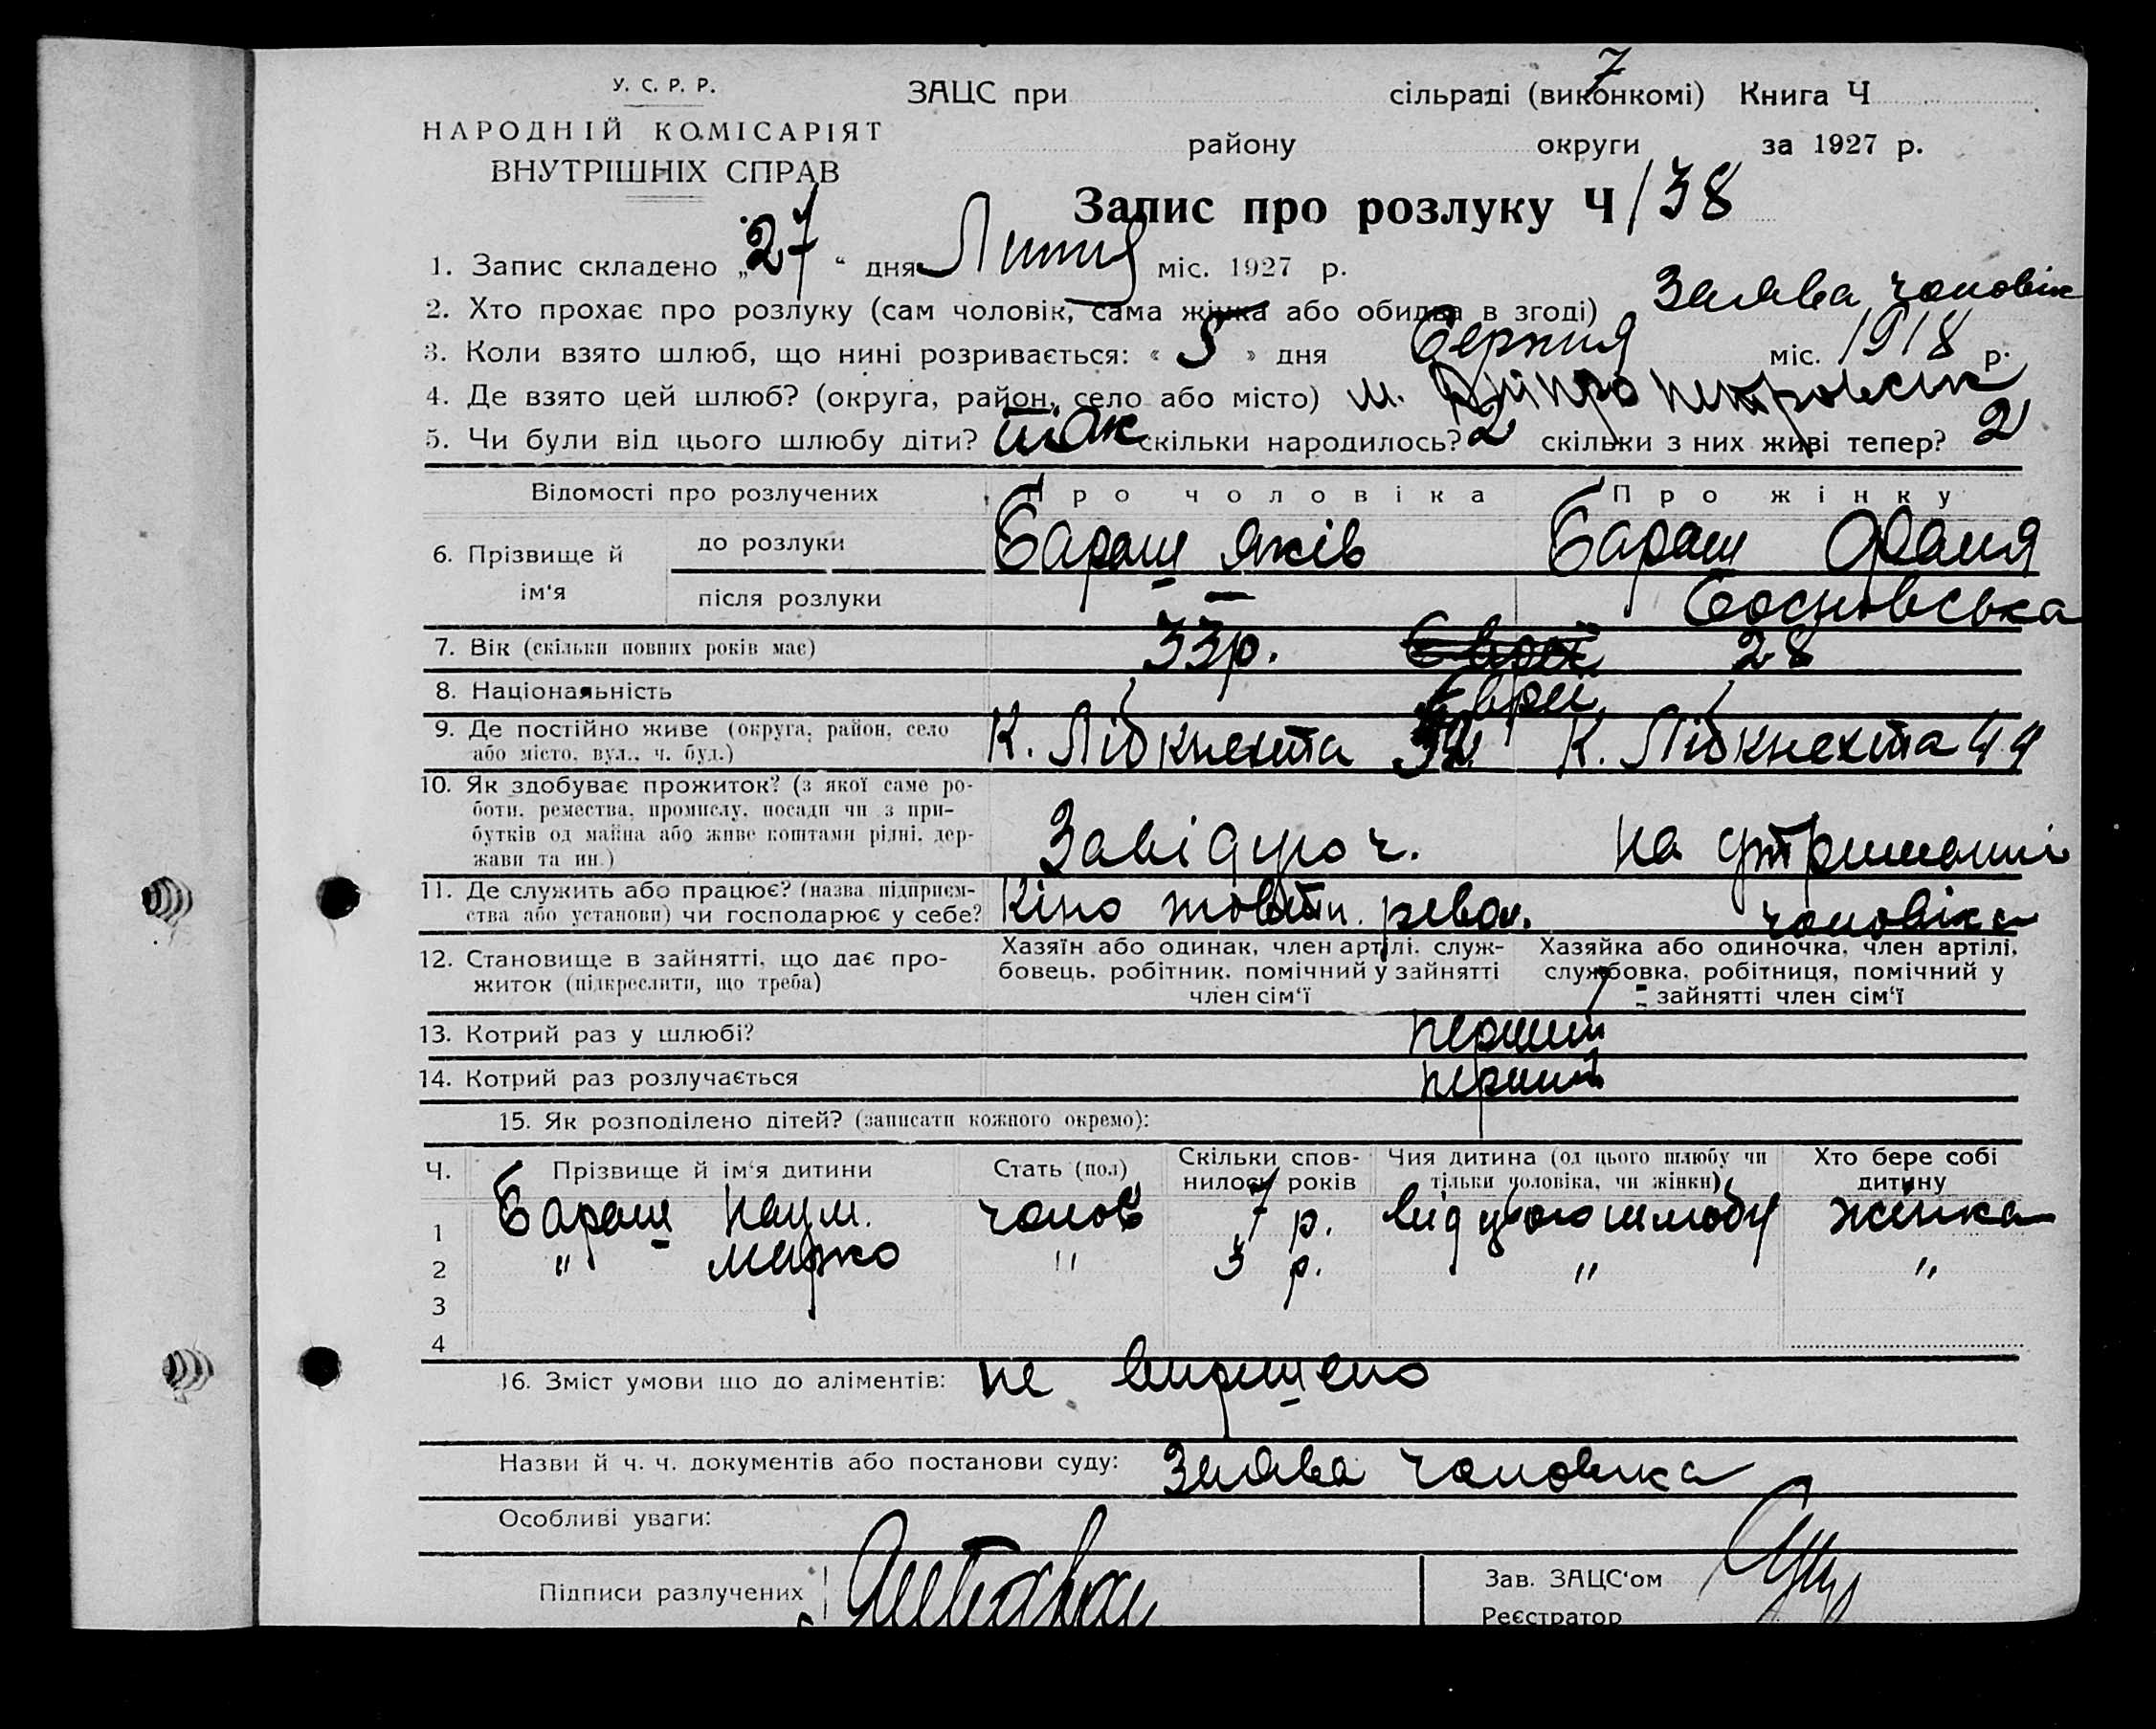 У. С. Р. Р.
НАРОДНІЙ КОМІСАРІЯТ
ВНУТРІШНІХ СПРАВ
7
ЗАЦС при сільраді (виконкомі) Книга Ч
району округи за 1927 р.
Запис про розлуку Ч 138
1. Запис складено „27“ дня Липня міс. 1927 р.
2. Хто прохає про розлуку (сам чоловік, сама жінка або обидва в згоді) Заява чоловік
3. Коли взято шлюб, що нині розривається: « 5 » дня Серпня міс. 1918 р.
4. Де взято цей шлюб? (округа, район, село або місто) м. Дніпропетровськ
5. Чи були від цього шлюбу діти? так скільки народилось? 2 скільки з них живі тепер? 2
Відомості про розлучених Про чоловіка Про жінку
6. Прізвище й ім‘я до розлуки Бараш Яків Бараш Фаня
після розлуки — Сосновська
7. Вік (скільки повних років має) 33р. 28
8. Національність Євреї
9. Де постійно живе (округа, район, село або місто, вул., ч. буд.) К. Лібкнехта К. Лібкнехта 44
10. Як здобуває прожиток? (з якої саме роботи, ремества, промислу, посади чи з прибутків од майна або живе коштами рідні, держави та ин.) Завідуюч. на утриманні
11. Де служить або працює? (назва підприємства або установи) чи господарює у себе? Кіно жовтн. револ. чоловіка
12. Становище в зайнятті, що дає прожиток (підкреслити, що треба) Хазяїн або одинак, член артілі, службовець, робітник, помічний у зайнятті член сім‘ї Хазяйка або одиночка, член артілі, службовка, робітниця, помічний у зайнятті член сім‘ї
13. Котрий раз у шлюбі? перший
14. Котрий раз розлучається перший
15. Як розподілено дітей? (записати кожного окремо):
Ч. Прізвище й ім‘я дитини Стать (пол) Скільки сповнилось років Чия дитина (од цього шлюбу чи тільки чоловіка, чи жінки) Хто бере собі дитину
1 Бараш Наум. чолов 7 р. від цього шлюбу жінка
2 " Мирко " 3 р. " "
3
4
16. Зміст умови що до аліментів: не вирішено
Назви й ч. ч. документів або постанови суду: Заява чоловіка
Особливі уваги:
Підписи разлучених Зав. ЗАЦС‘ом
Реєстратор